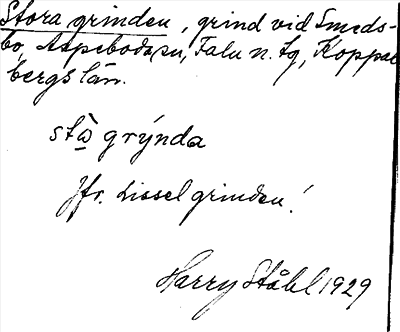 Stora grinden, grind vid Smeds-
bo, Aspeboda sn, Falu n. tg, Koppar-
bergs län.
stå̀ grýnda
Jfr. Lisselgrinden!
Harry Ståhl 1929